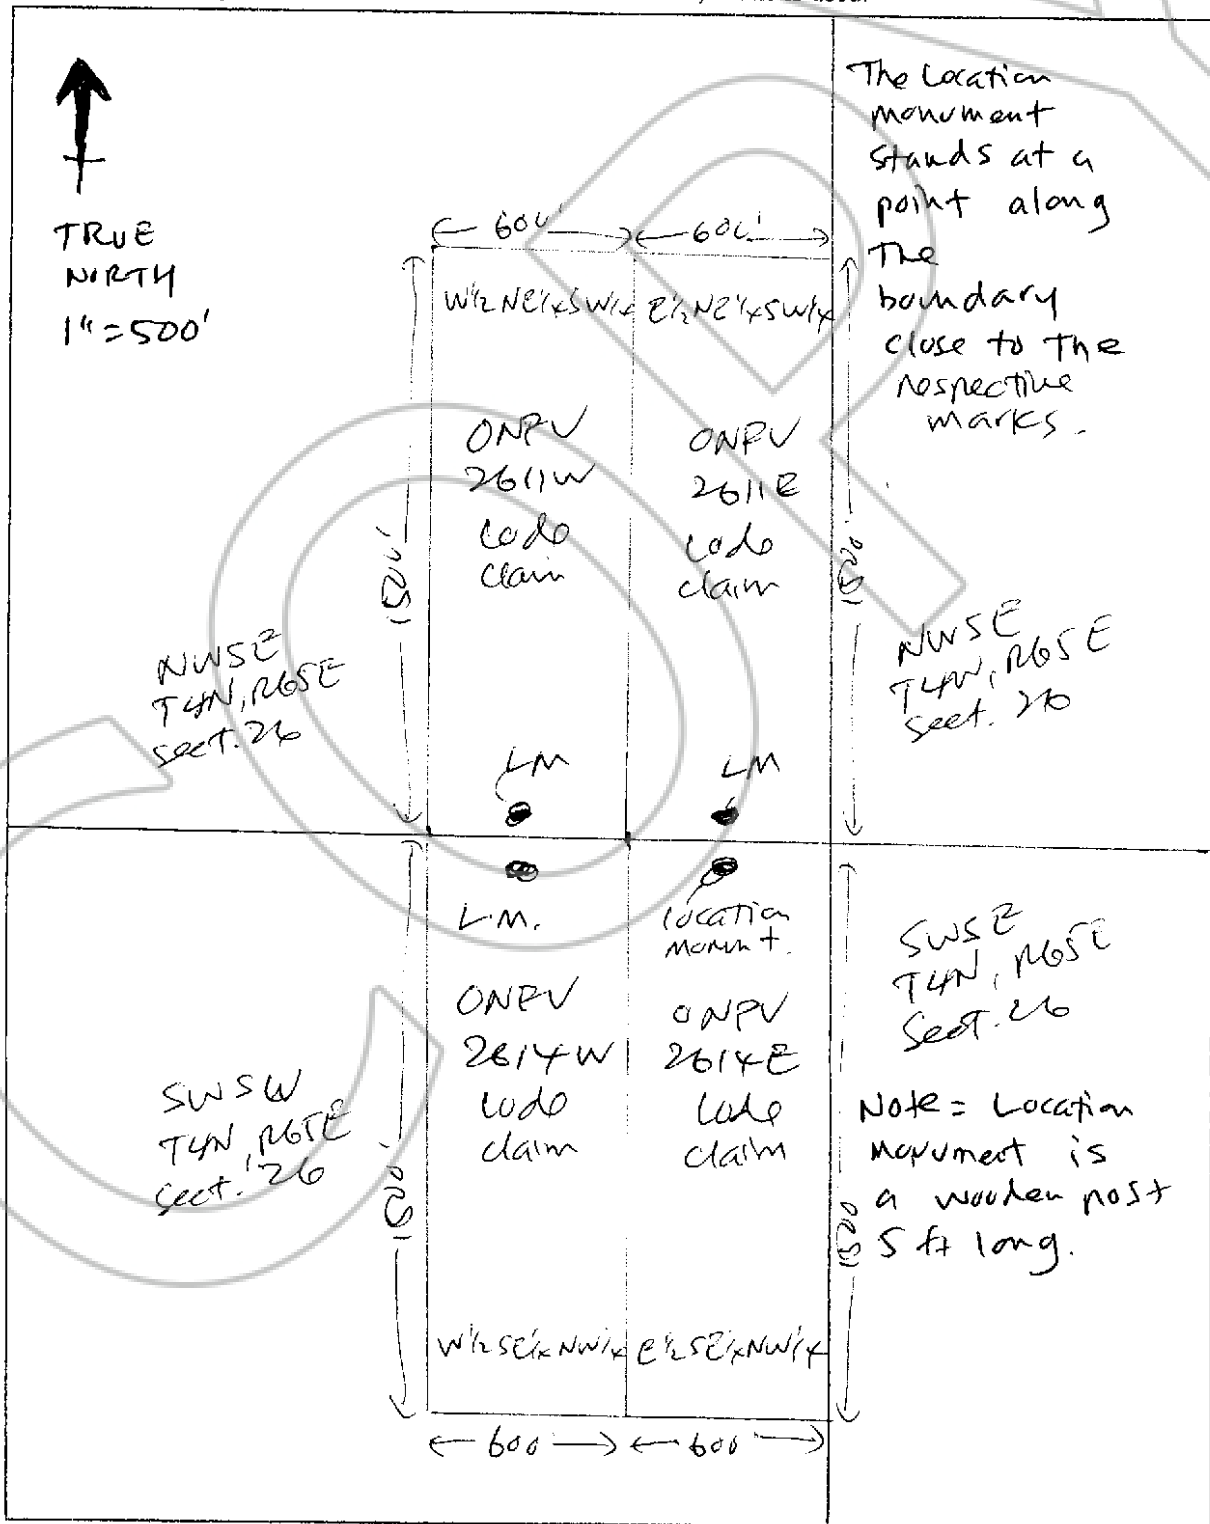 TRUE
NORTH
1"=500'
The Location
monument
stands at a
point along
The
boundary
close to the
respective
marks.
600' 600'
W½NE¼SW¼ E½NE¼SW¼
ONPV
2611W
Lode
claim
ONPV
2611E
Lode
claim
1500'
1500'
NWSE
T4N, R65E
sect. 26
NWSE
T4N, R65E
sect. 26
LM
LM
L.M.
Location
monumt.
ONPV
2614W
Lode
claim
ONPV
2614E
Lode
claim
SWSE
T4N, R65E
Sect. 26
SWSW
T4N, R65E
sect. 26
1500'
1500
Note = Location
Monument is
a wooden post
5 ft long.
W½SE¼NW¼ E½SE¼NW¼
600 600
COPY